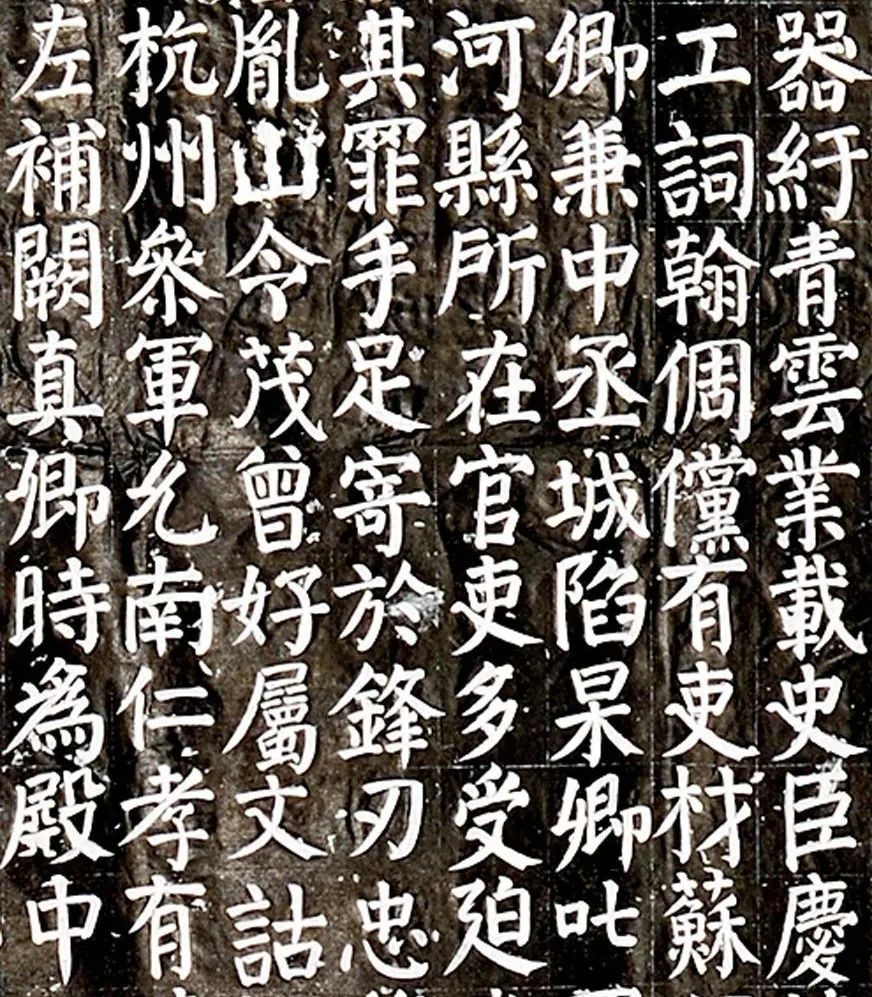 器紆青雲業載史臣慶
工詞翰倜儻有吏材蘇
卿兼中丞城陷杲卿叱
河縣所在官吏多受廹
其罪手足寄於鋒刃忠
胤山令茂曾好屬文詁
杭州叅軍允南仁孝有
左補闕真卿時為殿中